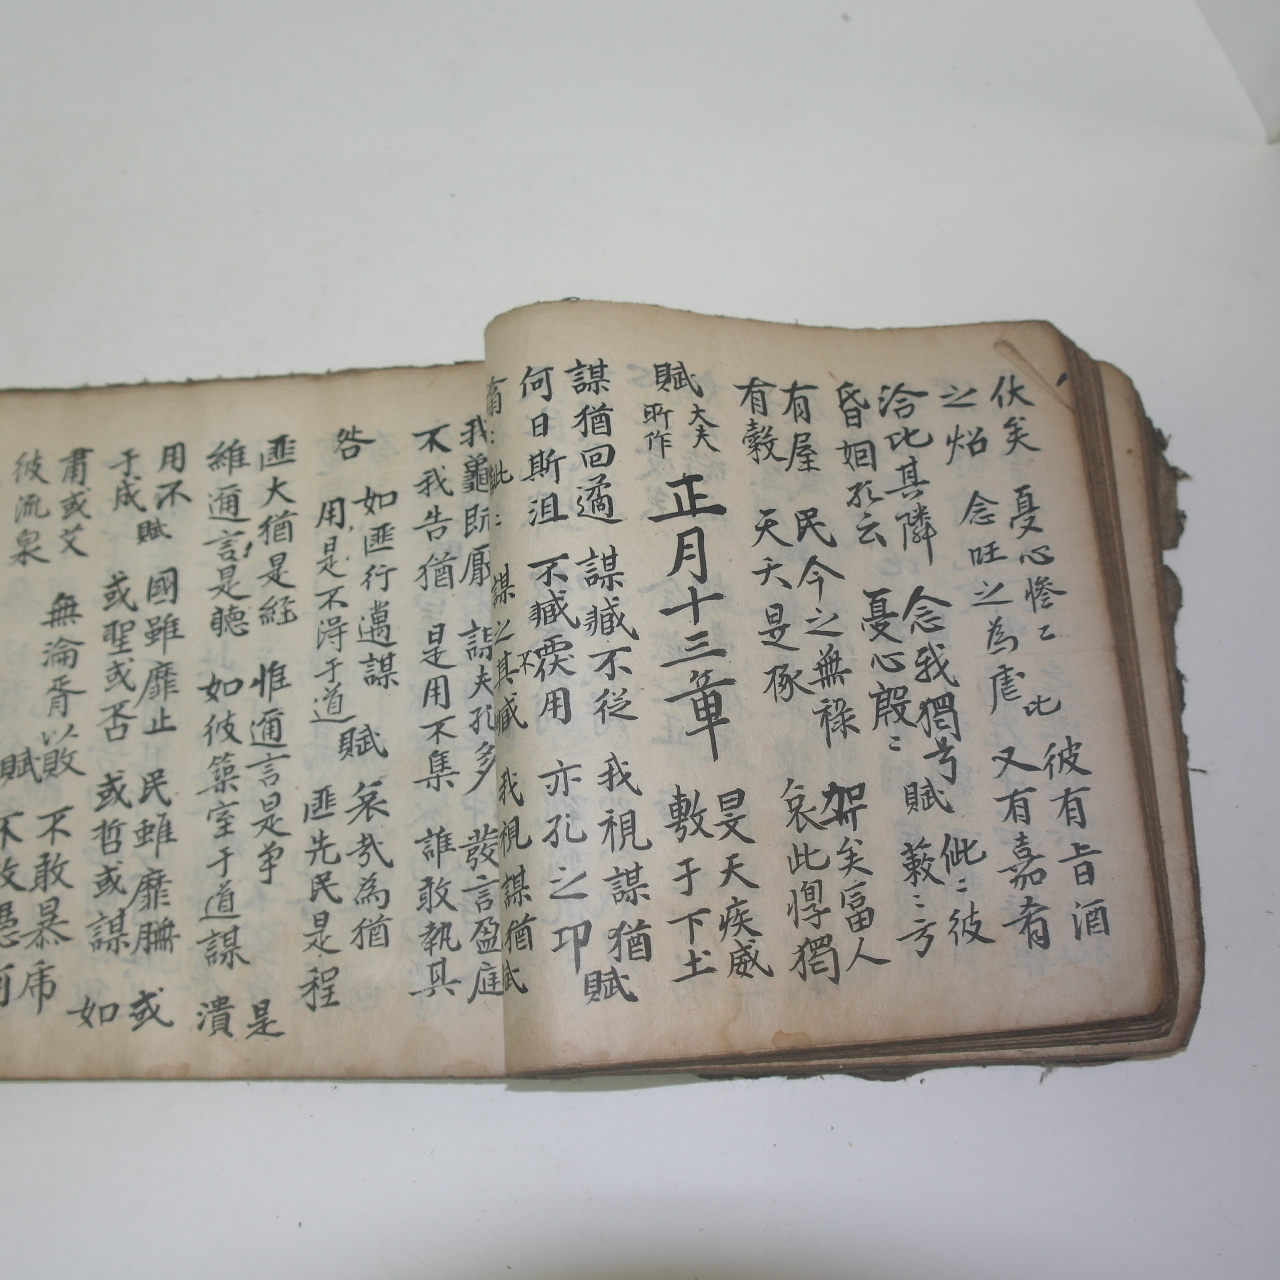 伏矣 憂心慘〻 比 彼有旨酒
之炤 念㕵之為虐 又有嘉肴
洽比其隣 念我獨兮 賦 佌〻彼
昏姻孔云 憂心殷〻 蔌〻方
有屋 民今之無祿 哿矣富人
有穀 天天是椓 哀此惸獨
賦 大夫所作 正月十三章 旻天疾威
敷于下土
謀猶回遹 謀臧不從 我視謀猶 賦
何日斯沮 不臧覆用 亦孔之邛
謀之其臧 不 我視謀猶
我龜旣厭 謀夫孔多 發言盈庭
不我告猶 是用不集 誰敢執其
咎 如匪行邁謀 賦 哀哉為猶
用是不淂于道 匪先民是程
匪大猶是經 惟邇言是爭 是
維邇言是聽 如彼築室于道謀 潰
用不 賦 國雖靡止 民雖靡膴 或
于成 或聖或否 或哲或謀 如
肅或艾 無淪胥以敗 不敢暴虎
彼流泉 賦 不敢